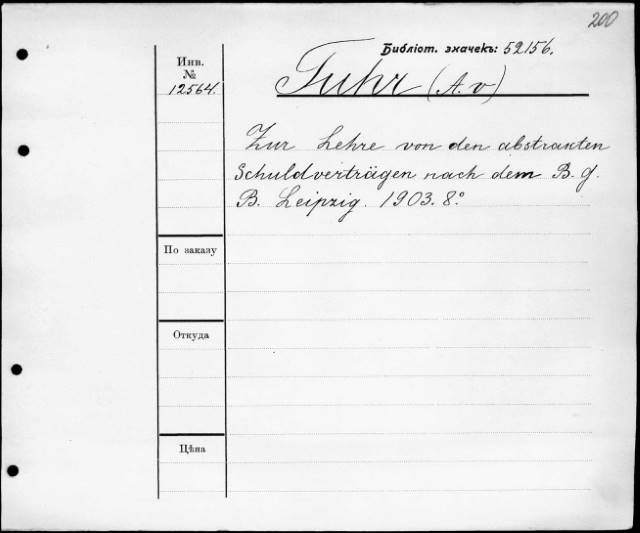 200
Библіот. значекъ: 52156.
Инв.
№
12564.
Tuhr (A. v)
Zur Lehre von den abstrakten
Schuldverträgen nach dem B. g.
B. Leipzig. 1903. 8.°
По заказу
Откуда
Цѣна